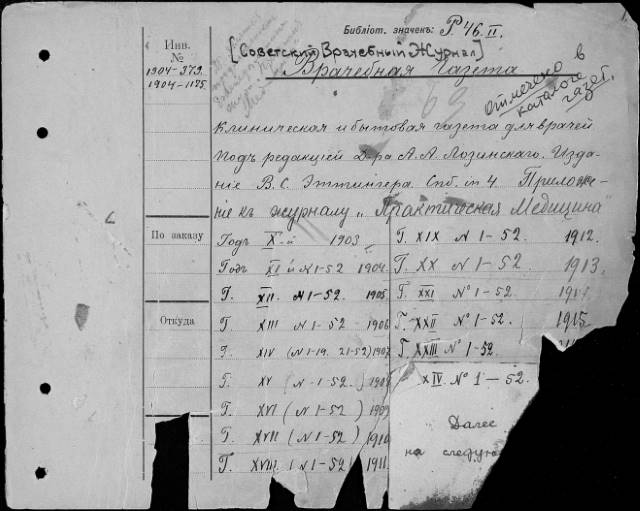 Библіот. значекъ: Р 46. II.
Инв. №
1904-373
1904-1125
[Советский Врачебный Журнал]
Врачебная Газета
Отмечено в
каталоге
газет.
63
Клиническая и бытовая газета для врачей
подъ редакціей Д-ра А. А. Лозинскаго. Изда-
ніе В. С. Эттингера. Спб. in 4. Приложе-
ніе къ журналу „Практическая Медицина"
По заказу
Откуда
Годъ X-й 1903
Годъ XI й N 1-52 1904.
Г. XII. N 1-52 1905.
Г. XIII N 1-52 1906
Г. XIV (N 1-19. 21-52) 1907
Г. XV (N 1-52.) 1908
Г. XVI (N 1-52) 1909
Г. XVII (N 1-52) 1910
Г. XVIII (N 1-52) 1911.
Г. XIX N 1-52. 1912.
Г. XX N 1-52. 1913.
Г. XXI Nº 1-52. 1914
Г. XXII Nº 1-52. 1915
Г. XXIII Nº 1-52.
XIV. Nº 1-52.
Далее
на следую